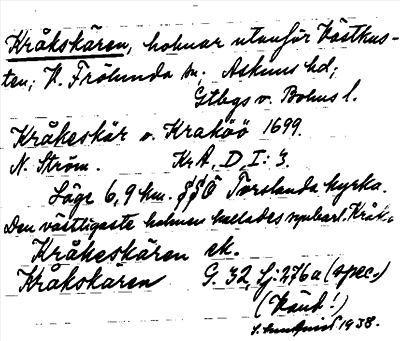 Kråkskären, holmar utanför Västkus-
ten; V. Frölunda sn; Askims hd;
Gtbgs o. Bohus l.
Kråkeskär o. Kraköö 1699.
N. Ström. KrA, D, I: 3.
Läge 6,9 km. SSÖ Torslanda kyrka.
Den västligaste holmen kallades uppbarl. Kråk-
Kråkeskären ek.
Kråkskären G. 32, Lj: 276a (spec.)
(Känt!)
1938.